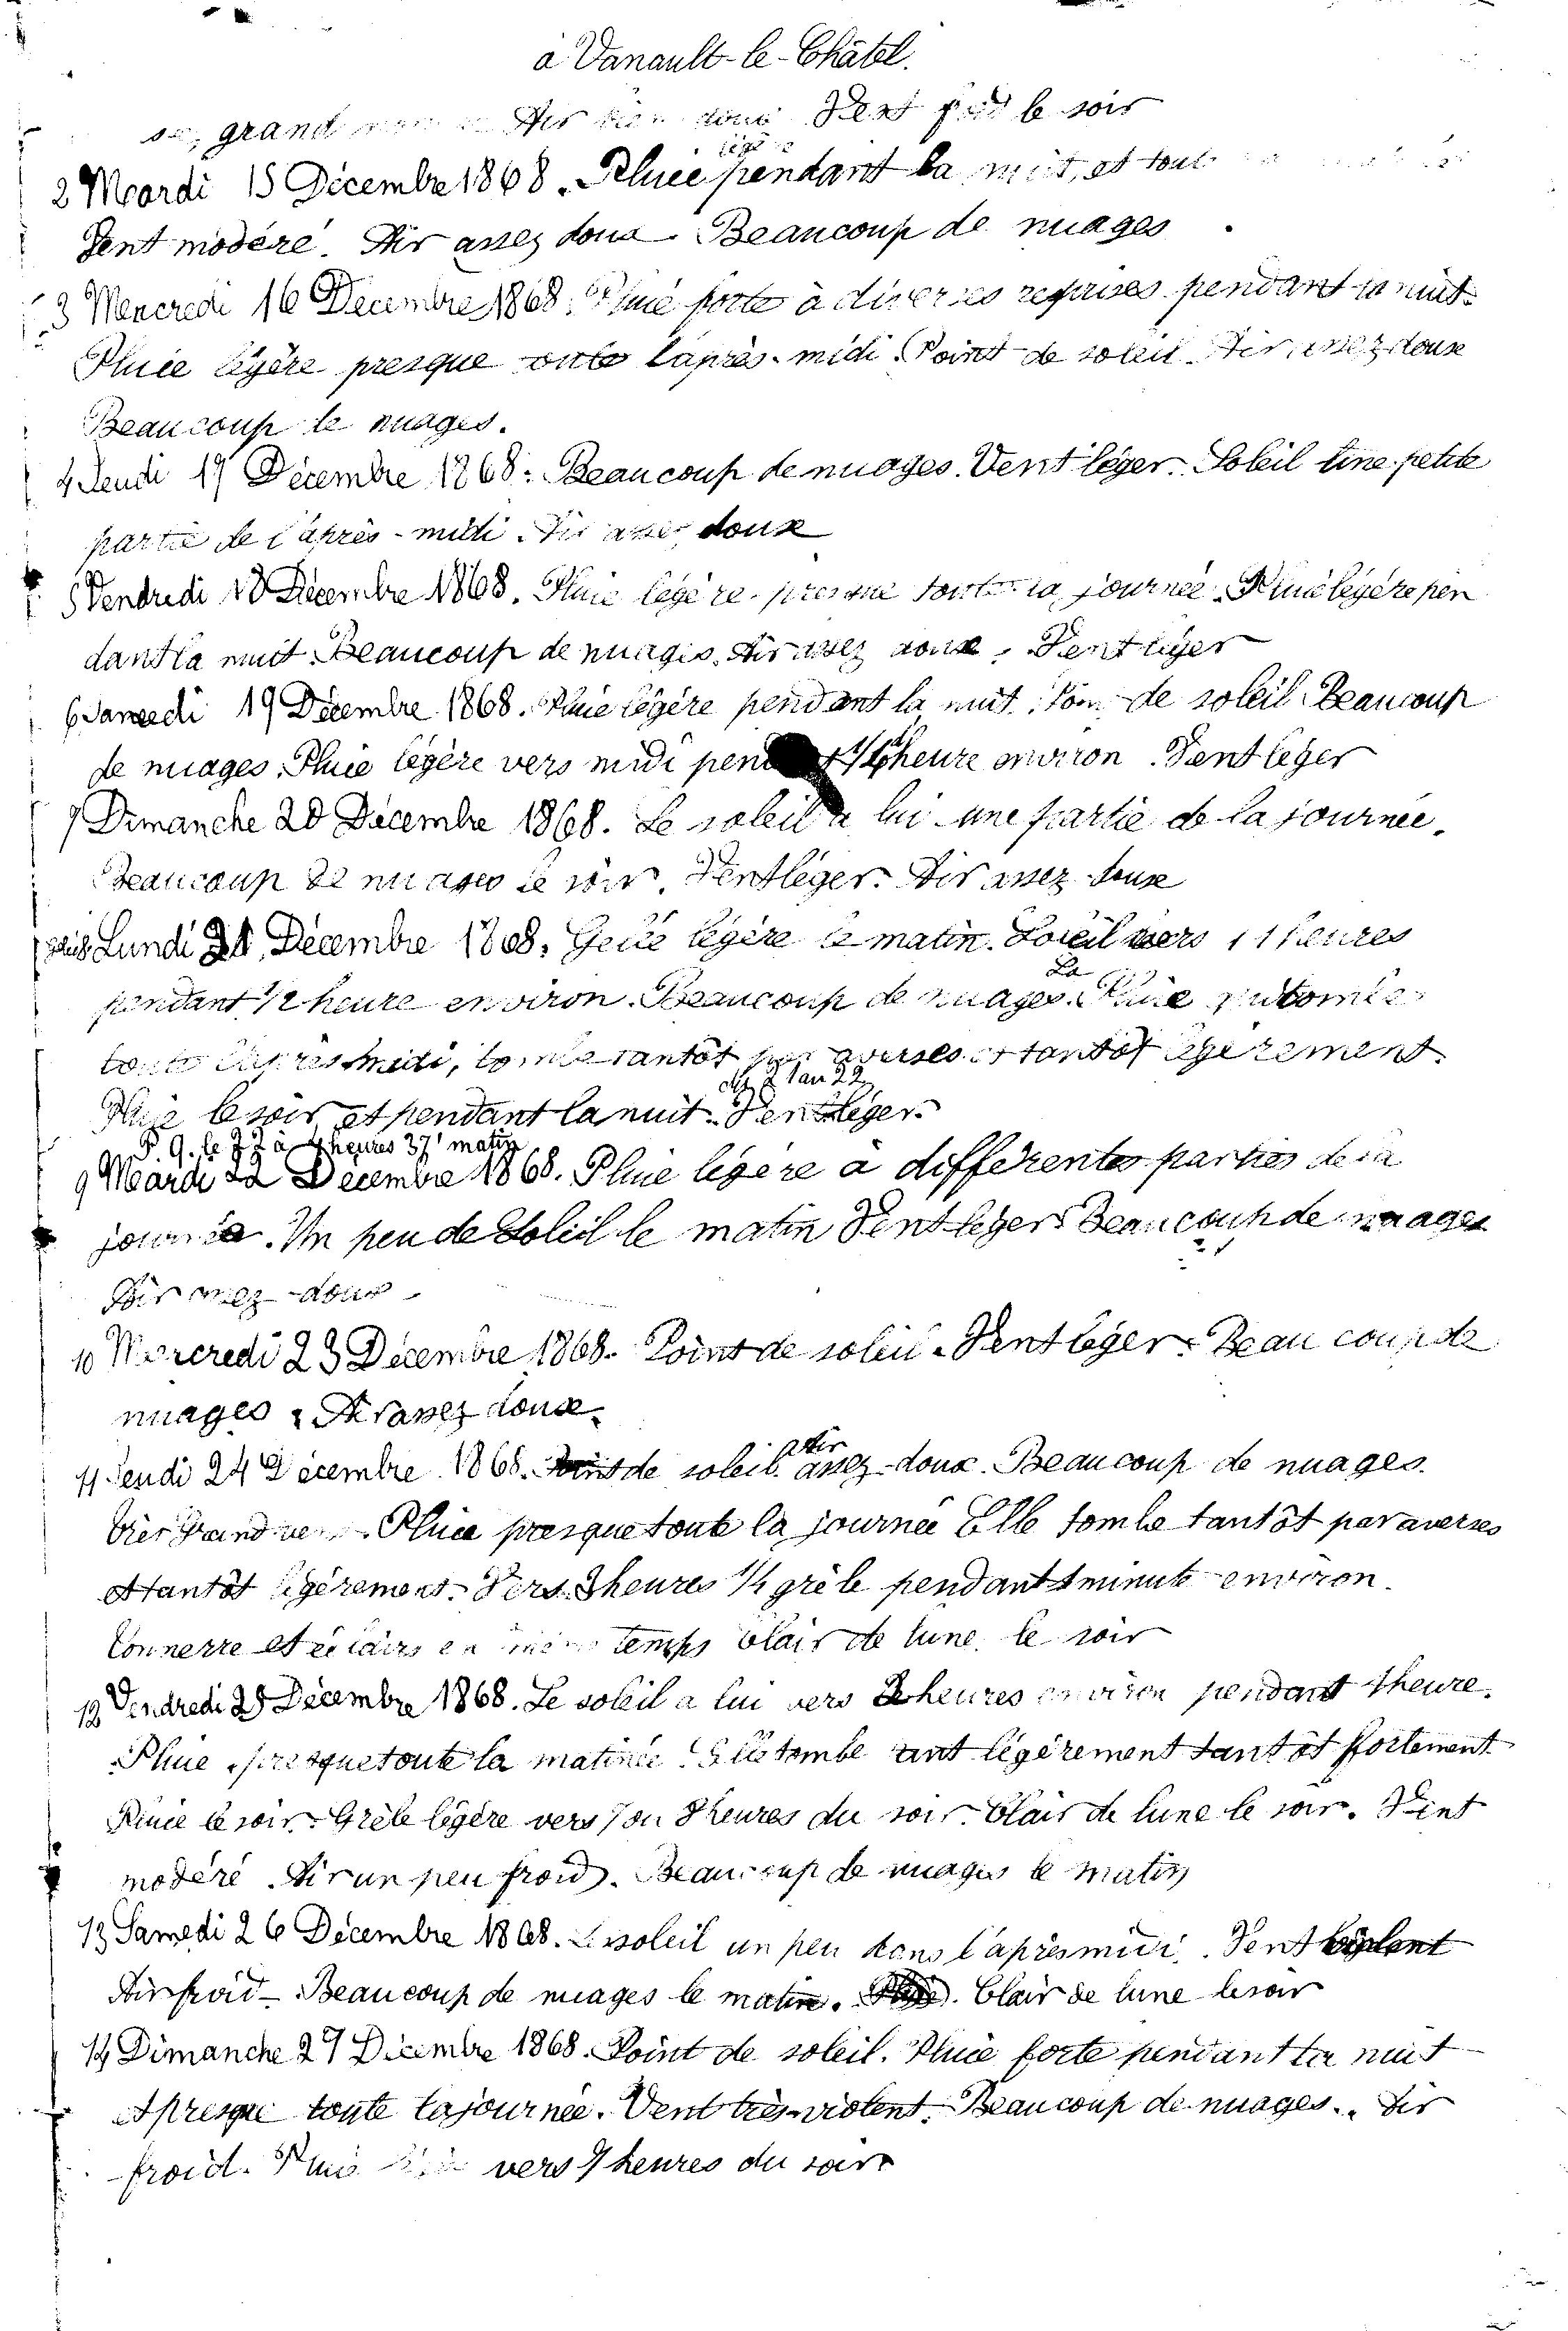 à Vanault-le-Châtel.
grand Air doux Vent froid le soir
légère
2 Mardi 15 Décembre 1868. Pluie pendant la nuit, et toute
Vent modéré. Air assez doux. Beaucoup de nuages
3 Mercredi 16 Décembre 1868. Pluie forte à diverses reprises pendant la nuit.
Pluie légère presque toute l'après-midi. Point de soleil. Air assez doux
Beaucoup de nuages.
4 Jeudi 17 Décembre 1868. Beaucoup de nuages. Vent léger. Soleil une petite
partie de l'après-midi. Air assez doux
5 Vendredi 18 Décembre 1868. Pluie légère presque toute la journée. Pluie légère pen
dant la nuit. Beaucoup de nuages. Air assez doux. Vent léger
6 Samedi 19 Décembre 1868. Pluie légère pendant la nuit. Point de soleil. Beaucoup
de nuages. Pluie légère vers midi pendant 1/4 heure environ. Vent léger
7 Dimanche 20 Décembre 1868. Le soleil a lui une partie de la journée.
Beaucoup de nuages le soir. Vent léger. Air assez doux
Lundi 21 Décembre 1868. Gelée légère le matin. Soleil vers 11 heures
La
pendant 1/2 heure environ. Beaucoup de nuages. Pluie qui tombe
toute l'après midi, tombe tantôt par averses et tantôt légèrement.
du 21 au 22
Pluie le soir et pendant la nuit. Vent léger.
P. Q. le 22 à 4 heures 37' matin
9 Mardi 22 Décembre 1868. Pluie légère à différentes parties de la
journée. Un peu de Soleil le matin Vent léger Beaucoup de nuages
Air assez doux
10 Mercredi 23 Décembre 1868. Point de soleil. Vent léger. Beaucoup de
nuages. Air assez doux.
Air
11 Jeudi 24 Décembre 1868. Point de soleil. assez doux. Beaucoup de nuages.
Très Grand vent. Pluie presque toute la journée Elle tombe tantôt par averses
et tantôt légèrement. Vers 3 heures 1/4 grêle pendant 1 minute environ.
Tonnerre et éclairs en même temps Clair de lune le soir
12 Vendredi 25 Décembre 1868. Le soleil a lui vers 2 heures environ pendant 1 heure.
Pluie presque toute la matinée. Elle tombe tant légèrement tantôt fortement.
Pluie le soir. Grêle légère vers 7 ou 8 heures du soir. Clair de lune le soir. Vent
modéré. Air un peu froid. Beaucoup de nuages le matin
13 Samedi 26 Décembre 1868. Le soleil un peu dans l'après midi. Vent violent
Air froid. Beaucoup de nuages le matin. Clair de lune le soir
14 Dimanche 27 Décembre 1868. Point de soleil. Pluie forte pendant la nuit
et presque toute la journée. Vent très-violent. Beaucoup de nuages. Air
froid. Pluie vers 7 heures du soir